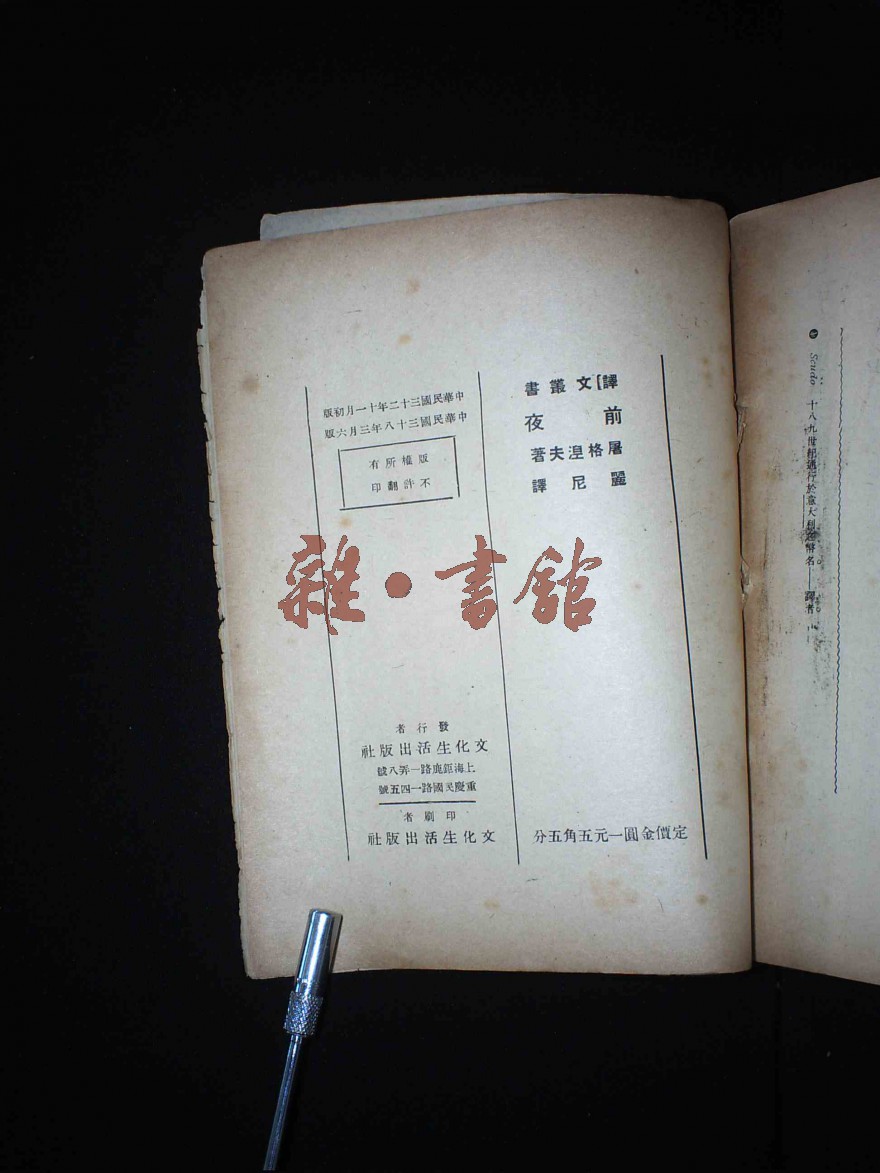 Scudo 十八九世紀通行於意大利之幣名——譯者。
譯文叢書
前夜
屠格湼夫著
麗尼譯
定價金圓一元五角五分
中華民國三十二年十一月初版
中華民國三十八年三月六版
版權所有
不許翻印
發行者
文化生活出版社
上海鉅鹿路一弄八號
重慶民國路一四五號
印刷者
文化生活出版社
雜·書館